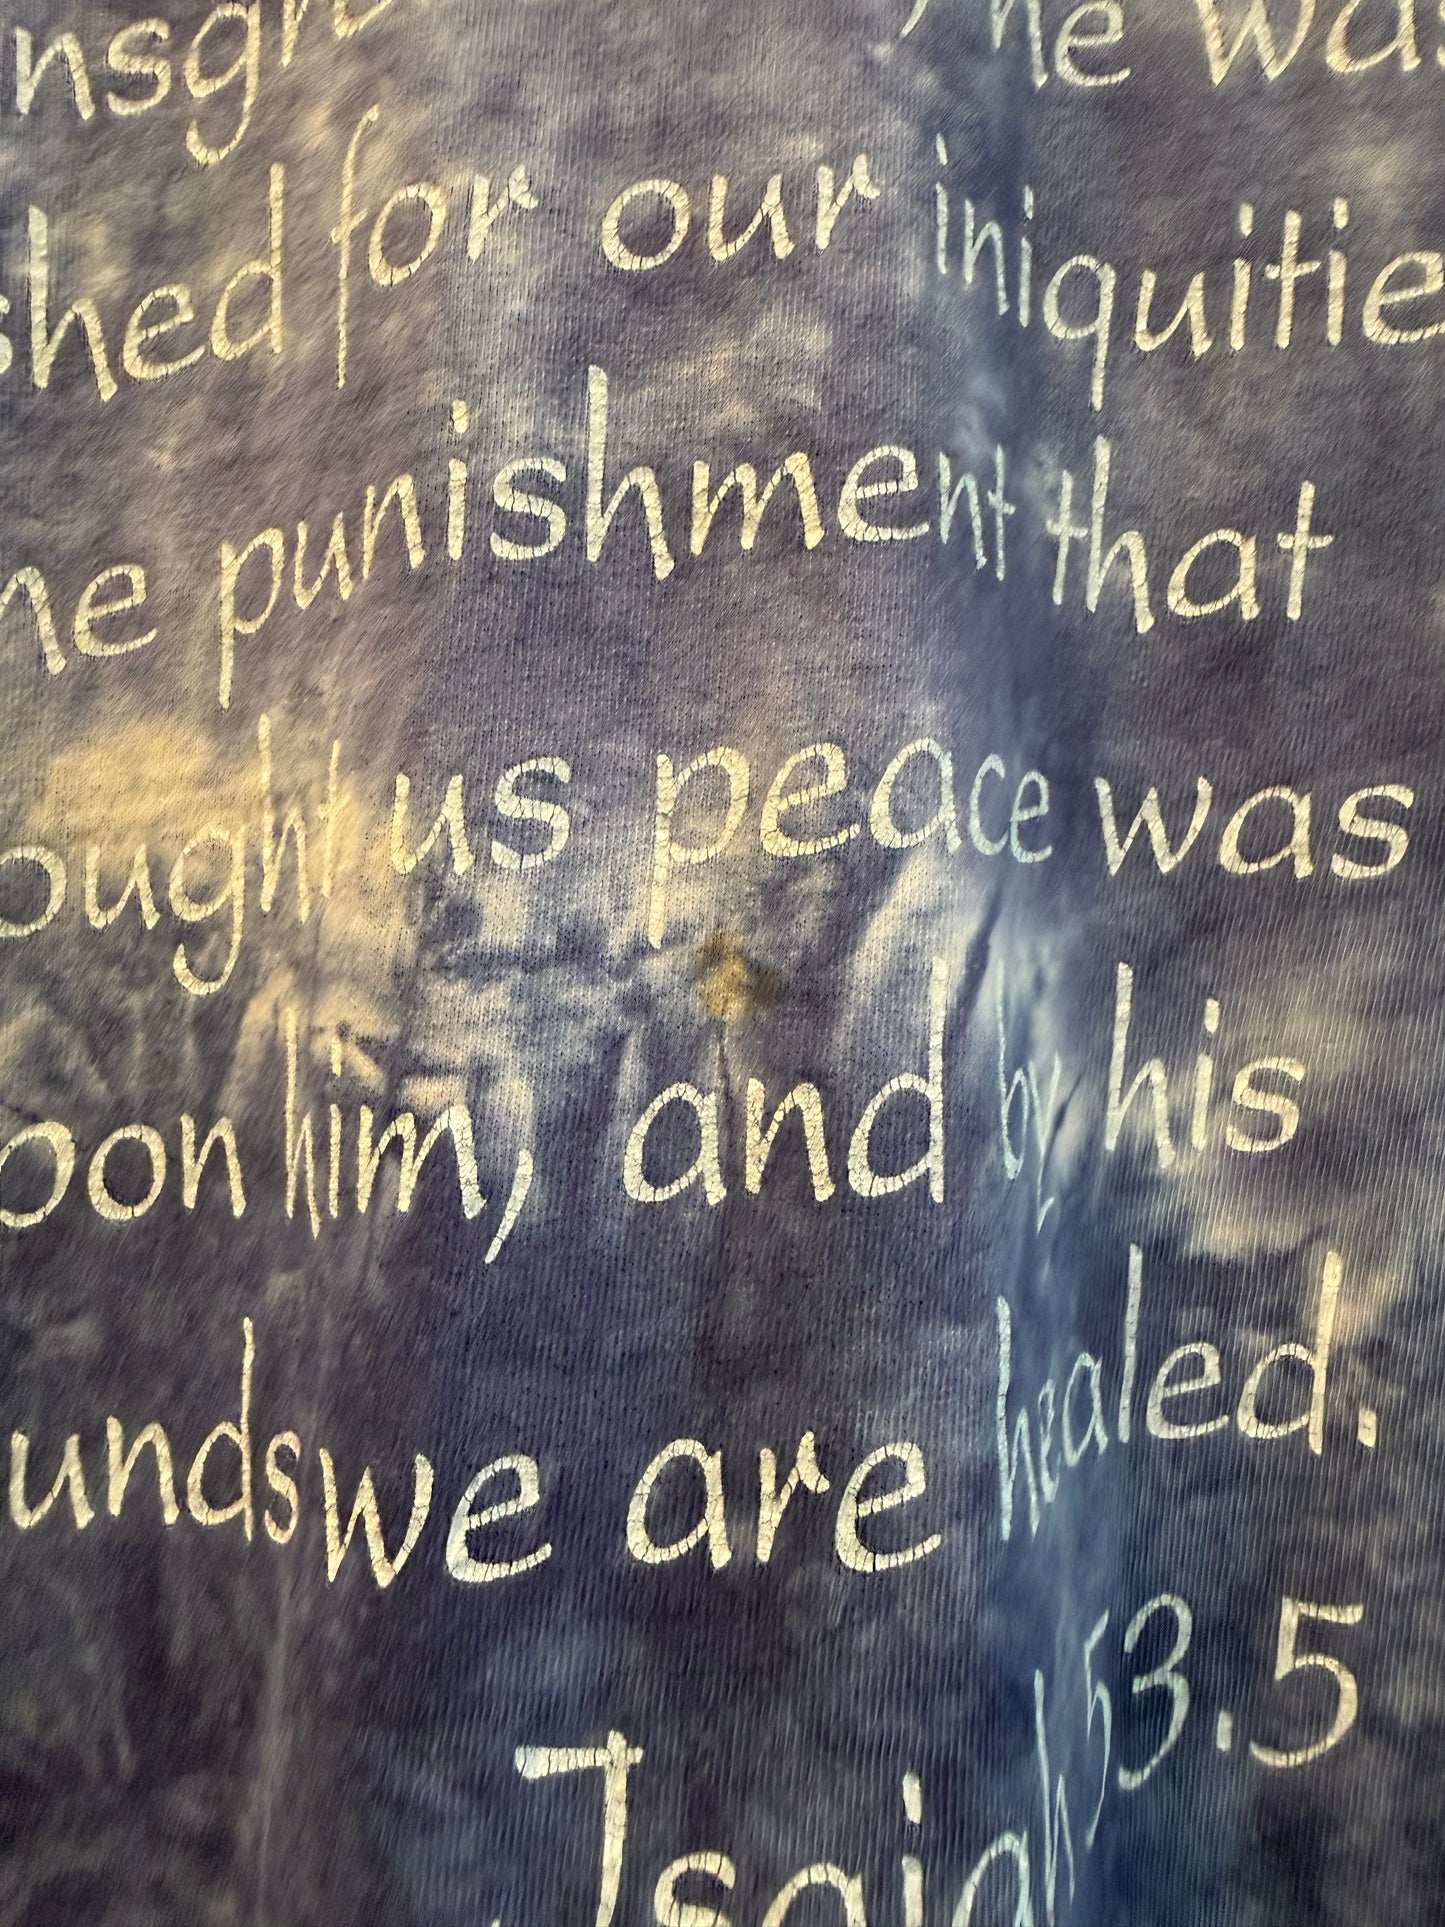 nsgr he was
shed for our iniquitie
he punishment that
ought us peace was
pon him, and by his
unds we are healed.
Isaiah 53.5